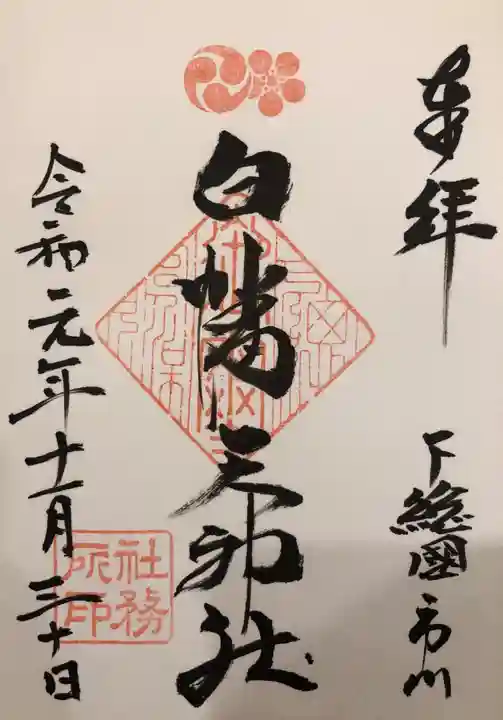 奉拝
下総國市川
白幡天神社
令和元年十一月三十日
社務
所印